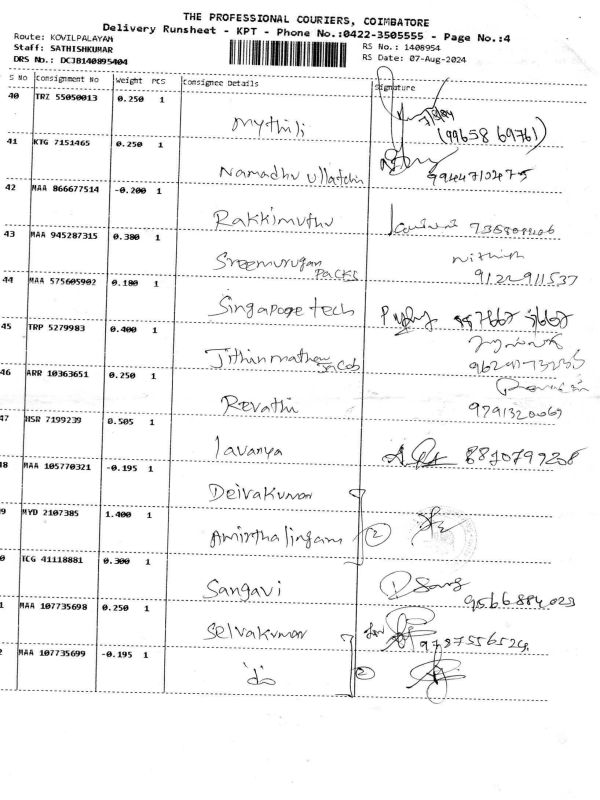 THE PROFESSIONAL COURIERS, COIMBATORE
Delivery Runsheet - KPT - Phone No.:0422-3505555 - Page No.:4
Route: KOVILPALAYAM
Staff: SATHISHKUMAR
DRS No.: DCJB140895404
RS No.: 1408954
RS Date: 07-Aug-2024
S No Consignment No Weight PCS Consignee Details Signature
40 TRZ 55050013 0.250 1
Mythili
(99658 69761)
41 KTG 7151465 0.250 1
Namadhu ullatchi
9944710475
42 MAA 866677514 -0.200 1
Rakkimuthu
43 MAA 945287315 0.380 1
Sreemurugan Packs
Nithish
9122911537
44 MAA 575605902 0.180 1
Singapore tech
45 TRP 5279983 0.400 1
Jithin mathew Jacob
46 ARR 10363651 0.250 1
Revathi
9791320069
47 HSR 7199239 0.505 1
lavanya
8870799258
8 MAA 105770321 -0.195 1
Deivakumar
9 MYD 2107385 1.400 1
Amirthalingam
2
0 TCG 41118881 0.300 1
Sangavi
9566884023
1 MAA 107735698 0.250 1
Selvakumar
2 MAA 107735699 -0.195 1
do
2